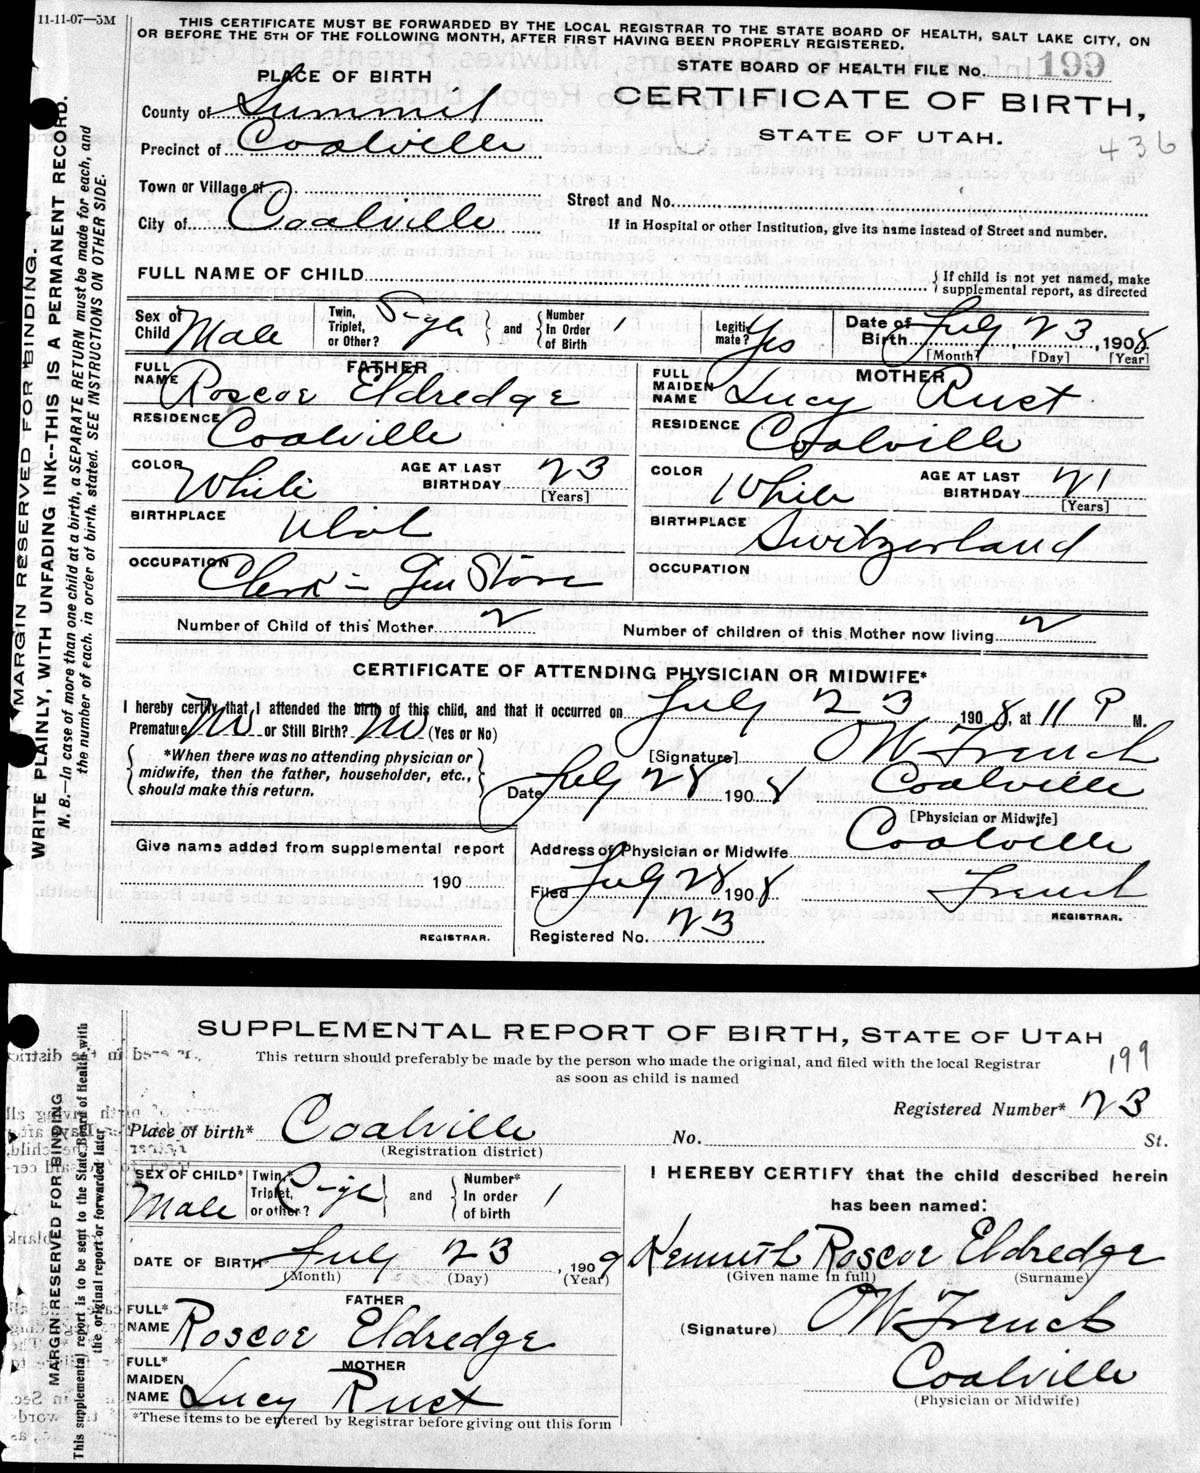 11-11-07—5M
THIS CERTIFICATE MUST BE FORWARDED BY THE LOCAL REGISTRAR TO THE STATE BOARD OF HEALTH, SALT LAKE CITY, ON
OR BEFORE THE 5TH OF THE FOLLOWING MONTH, AFTER FIRST HAVING BEEN PROPERLY REGISTERED.
STATE BOARD OF HEALTH FILE No. 199
CERTIFICATE OF BIRTH,
STATE OF UTAH.
436
PLACE OF BIRTH
County of Summit
Precinct of Coalville
Town or Village of
City of Coalville
Street and No.
If in Hospital or other Institution, give its name instead of Street and number.
FULL NAME OF CHILD
{ If child is not yet named, make
supplemental report, as directed
Sex of Child Male
Twin, Triplet, or Other? Single } and { Number In Order of Birth 1
Legitimate? Yes
Date of Birth July 23, 1908
[Month] [Day] [Year]
FATHER
FULL NAME Roscoe Eldredge
RESIDENCE Coalville
COLOR White
AGE AT LAST BIRTHDAY 23
[Years]
BIRTHPLACE Utah
OCCUPATION Clerk in Gen Store
MOTHER
FULL MAIDEN NAME Lucy Rust
RESIDENCE Coalville
COLOR White
AGE AT LAST BIRTHDAY 21
[Years]
BIRTHPLACE Switzerland
OCCUPATION
Number of Child of this Mother 2
Number of children of this Mother now living 2
CERTIFICATE OF ATTENDING PHYSICIAN OR MIDWIFE*
I hereby certify that I attended the birth of this child, and that it occurred on July 23 1908, at 11 P M.
Premature No or Still Birth? No (Yes or No)
{ *When there was no attending physician or
midwife, then the father, householder, etc.,
should make this return. }
[Signature] OW French
Date July 28 1908 Coalville
[Physician or Midwife]
Give name added from supplemental report
190
REGISTRAR.
Address of Physician or Midwife Coalville
Filed July 28 1908 French
REGISTRAR.
Registered No. 23
MARGIN RESERVED FOR BINDING.
WRITE PLAINLY, WITH UNFADING INK--THIS IS A PERMANENT RECORD.
N. B.—In case of more than one child at a birth, a SEPARATE RETURN must be made for each, and
the number of each. in order of birth. stated. SEE INSTRUCTIONS ON OTHER SIDE.
SUPPLEMENTAL REPORT OF BIRTH, STATE OF UTAH
This return should preferably be made by the person who made the original, and filed with the local Registrar
as soon as child is named
199
Registered Number* 23
Place of birth* Coalville No. St.
(Registration district)
SEX OF CHILD* Male
Twin,* Triplet, or other? Single } and { Number* In order of birth 1
DATE OF BIRTH* July 23, 1909
(Month) (Day) (Year)
FATHER
FULL* NAME Roscoe Eldredge
MOTHER
FULL* MAIDEN NAME Lucy Rust
*These items to be entered by Registrar before giving out this form
I HEREBY CERTIFY that the child described herein
has been named:
Kenneth Roscoe Eldredge
(Given name in full) (Surname)
(Signature) OW French
Coalville
(Physician or Midwife)
MARGIN RESERVED FOR BINDING
This supplemental report is to be sent to the State Board of Health with
the original report or forwarded later